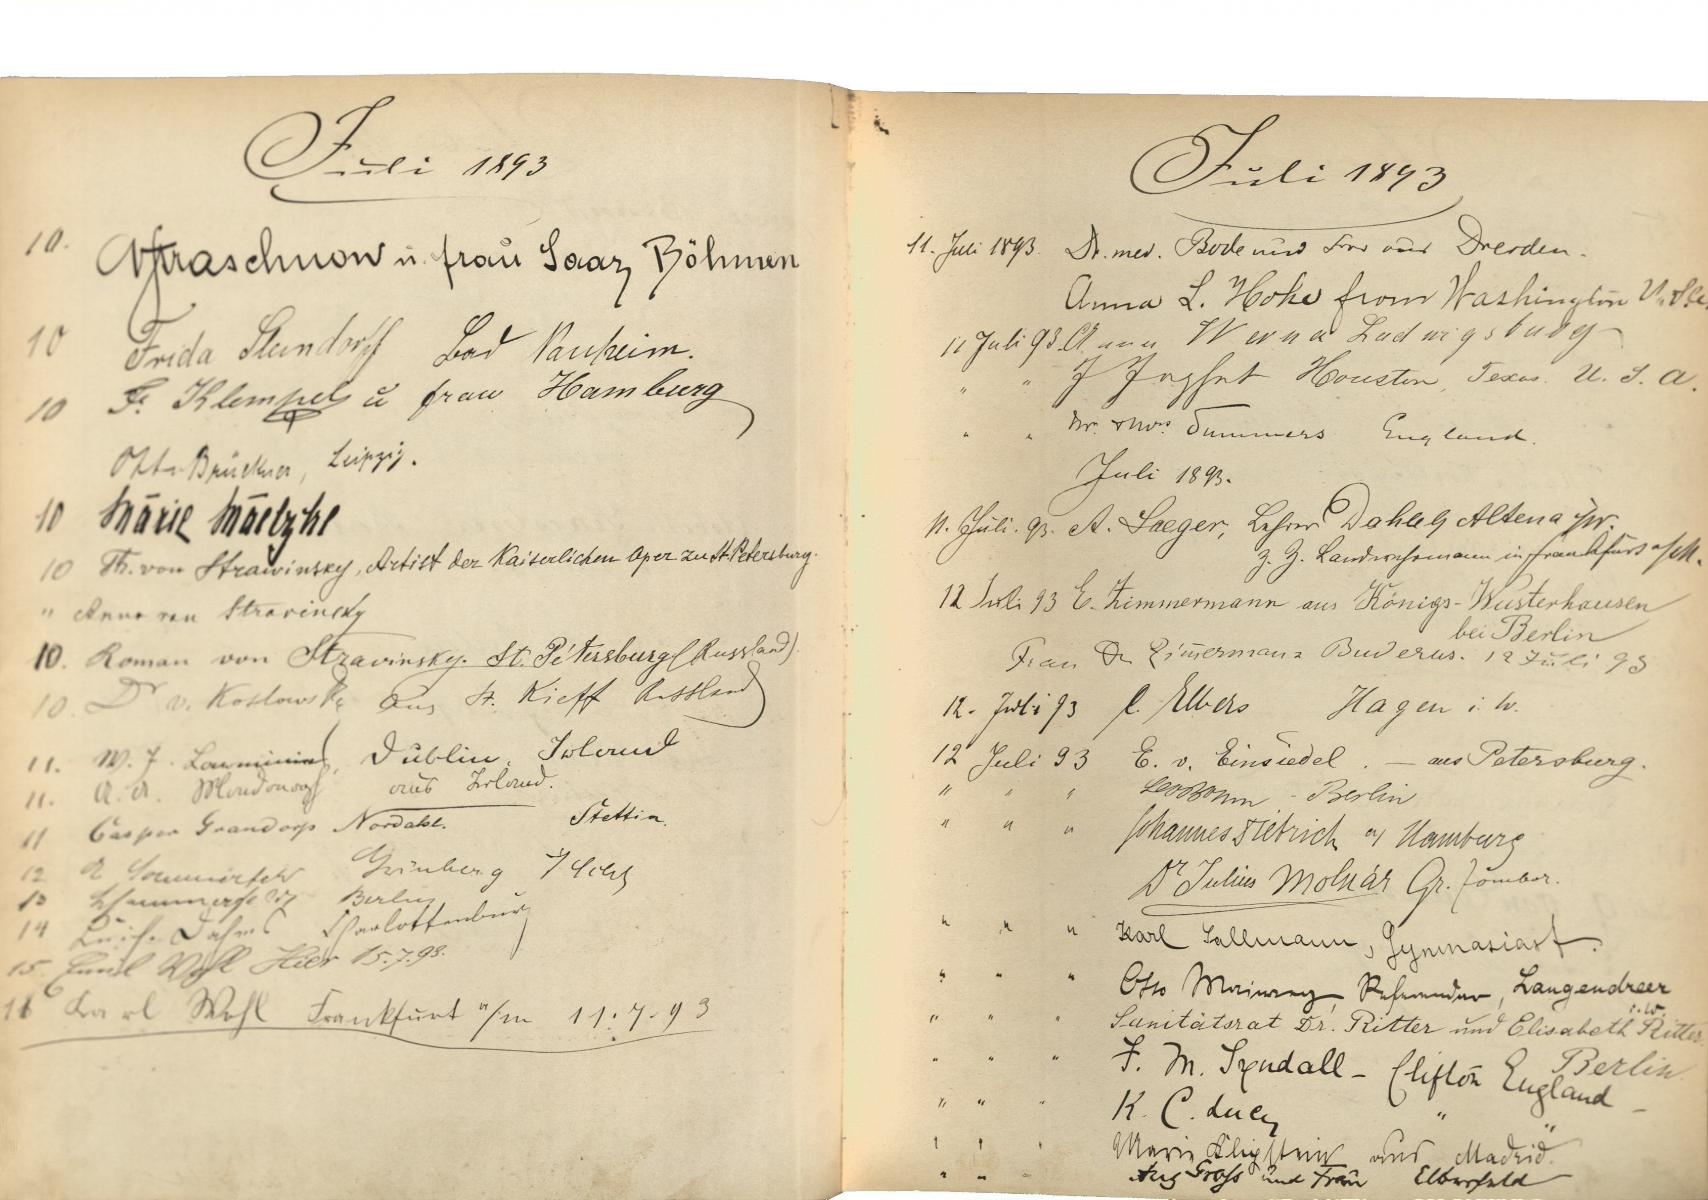 Juli 1893
10. u. frau Saaz Böhmen
10 Frida Steindorff Bad Nauheim.
10 Fr. Klempel u frau Hamburg
Otto Brückner, Leipzig.
10 Marie Maetzke
10 Th. von Strawinsky, Artist der Kaiserlichen Oper zu St. Petersburg.
" Anna von Stravinsky
10. Roman von Stravinsky. St. Pétersburg (Russland).
10. Dr v. Kostowski aus St. Kieff Russland
11. W. F. Dublin, Irland
11. A. A. aus Irland.
11 Casper Nordahl. Stettin.
12 Grünberg
13 Berlin
14 Charlottenburg
15. Emil Wohl Hier 15.7.93.
11 Karl Wohl Frankfurt a/m 11.7.93
Juli 1893
11. Juli 1893. Dr. med. Bode und Frau aus Dresden.
Anna L. Hoke from Washington
11 Juli 93. Anna Werna Ludwigsburg
" " J Houston, Texas. U. S. A.
" " Mr. & Mrs. Summers England.
Juli 1893.
11. Juli. 93. A. Saeger, Lehrer Dahle b/ Altena
z. Z. in Frankfurt a/M.
12 Juli 93 E. Zimmermann aus Königs-Wusterhausen
bei Berlin
Frau Dr Zimmermann Buderus. 12 Juli 93
12. Juli 93 C. Elbers Hagen i. W.
12 Juli 93 E. v. Einsiedel. — aus Petersburg.
" " " Leo Bohm - Berlin
" " " Johannes Dietrich a/ Hamburg
Dr Julius Molnár Gr.
" " " Karl Sallmann, Gymnasiast.
" " " Otto Referendar, Langendreer
i. W.
" " " Sanitätsrat Dr. Ritter und Elisabeth Ritter
Berlin
" " " F. M. Tyndall - Clifton England -
" " " K. C. Lucy " "
" " " Marie Klipstein aus Madrid.
" " " Aug Gross und Frau Elberfeld